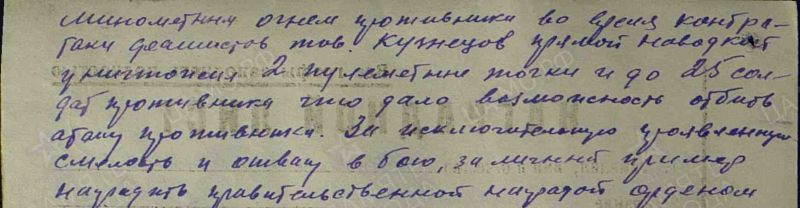 Минометным огнем противника во время контра-
таки фашистов тов. Кузнецов прямой наводкой
уничтожил 2 пулеметные точки и до 25 сол-
дат противника что дало возможность отбить
атаку противника. За исключительную проявленную
смелость и отвагу в бою, за личный пример
наградить правительственной наградой орденом